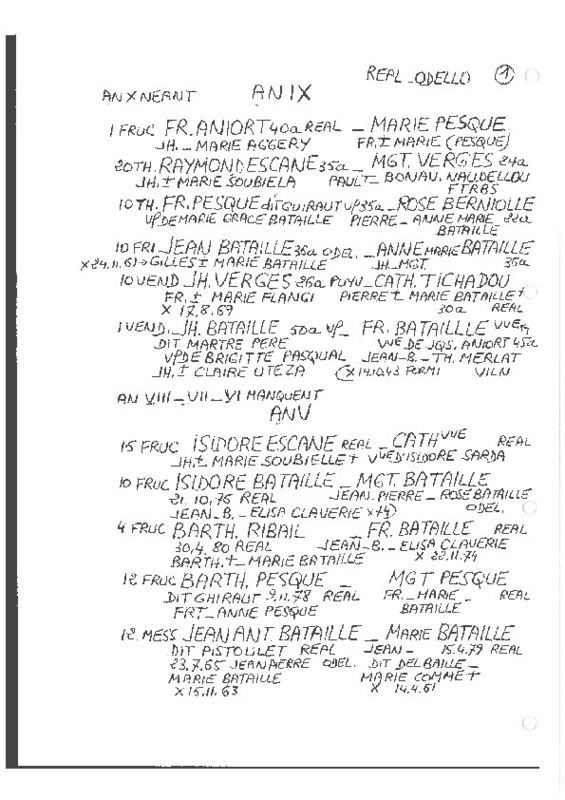 REAL - ODELLO 1
AN X NEANT AN IX
1 FRUC FR. ANIORT 40a REAL - MARIE PESQUE
JH. - MARIE AGGERY FR.± MARIE (PESQUE)
20 TH. RAYMOND ESCANE 35a - MGT. VERGES 24a
JH.± MARIE SOUBIELA PAUL± BONAV. NAUDELLOU
FTRBS
10 TH. FR. PESQUE dit GUIRAUT VF 35a - ROSE BERNIOLLE
VF DE MARIE GRACE BATAILLE PIERRE - ANNE MARIE 22a
BATAILLE
10 FRI JEAN BATAILLE 36a ODEL. - ANNE MARIE BATAILLE
X 24.11.61 GILLES± MARIE BATAILLE JH. MGT. 36a
10 VEND JH. VERGES 26a PUYV - CATH. TICHADOU
FR. ± MARIE FLANGI PIERRE± MARIE BATAILLE+
X 17.8.69 30a REAL
1 VEND. JH. BATAILLE 50a VF - FR. BATAILLLE VVE
DIT MARTRE PERE VVE DE JQS. ANIORT 45a
VF DE BRIGITTE PASQUAL JEAN-B. - TH. MERLAT
JH.± CLAIRE UTEZA (X 14.10.43 FORMI VILN
AN VIII - VII - VI MANQUENT
AN V
15 FRUC ISIDORE ESCANE REAL - CATH VVE REAL
JH.± MARIE SOUBIELLE+ VVE D'ISIDORE SARDA
10 FRUC ISIDORE BATAILLE - MGT. BATAILLE
21.10.75 REAL JEAN.PIERRE - ROSE BATAILLE
JEAN-B. - ELISA CLAVERIE X 74) ODEL.
4 FRUC BARTH. RIBAIL - FR. BATAILLE REAL
30.4.80 REAL JEAN-B. - ELISA CLAVERIE
BARTH.± - MARIE BATAILLE X 22.11.74
12 FRUC BARTH. PESQUE - MGT PESQUE
DIT GHIRAUT 9.11.78 REAL FR. - MARIE - REAL
FR± - ANNE PESQUE BATAILLE
12. MESS JEAN ANT. BATAILLE - MARIE BATAILLE
DIT PISTOULET REAL JEAN - 15.4.79 REAL
23.7.65 JEAN PIERRE ODEL. DIT DEL BAILLE -
MARIE BATAILLE MARIE COMME+
X 15.11.63 X 14.4.61